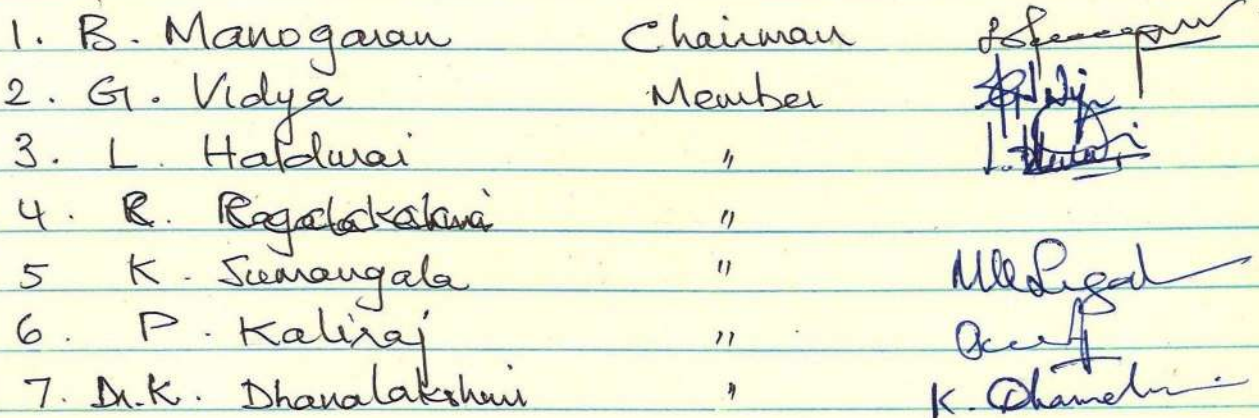 1. B. Manogaran Chairman
2. G. Vidya Member
3. L. Haldurai "
4. R. "
5 K. Sumangala "
6. P. Kaliraj "
7. Dr. K. Dhanalakshmi " K.